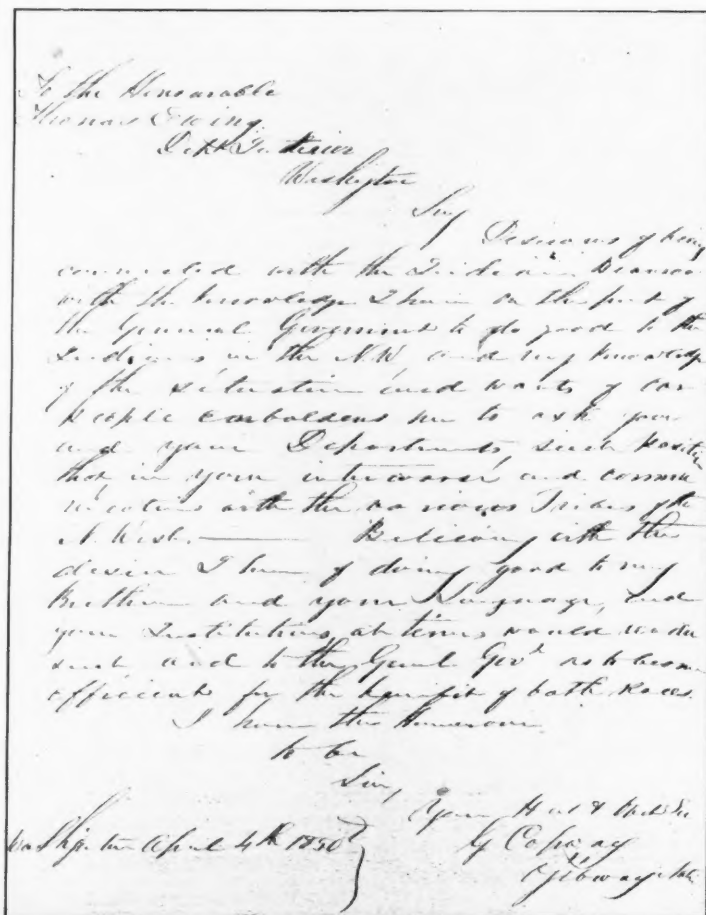 To the Honourable
Thomas Ewing
Dept Interior
Washington
Sir, Desirous of being
connected with the Indian
with the knowledge I have on the part of
the General Goverment to do good to the
Indians in the NW, and my knowledge
of the situation and wants of our
People emboldens me to ask you
and your Department, such Position
that, in your intercourse, and commu
nications with the various Tribes of the
N. West. ——— Believing with the
desire I have of doing good to my
Brethren and your Language, and
your Institutions, at times would render
such aid to the Genl. Govt. as to become
efficient for the benefit of both Races.
I have the Honour
to be
Sir,
Your
Washington April 4th 1850 G Copway
Ojibway